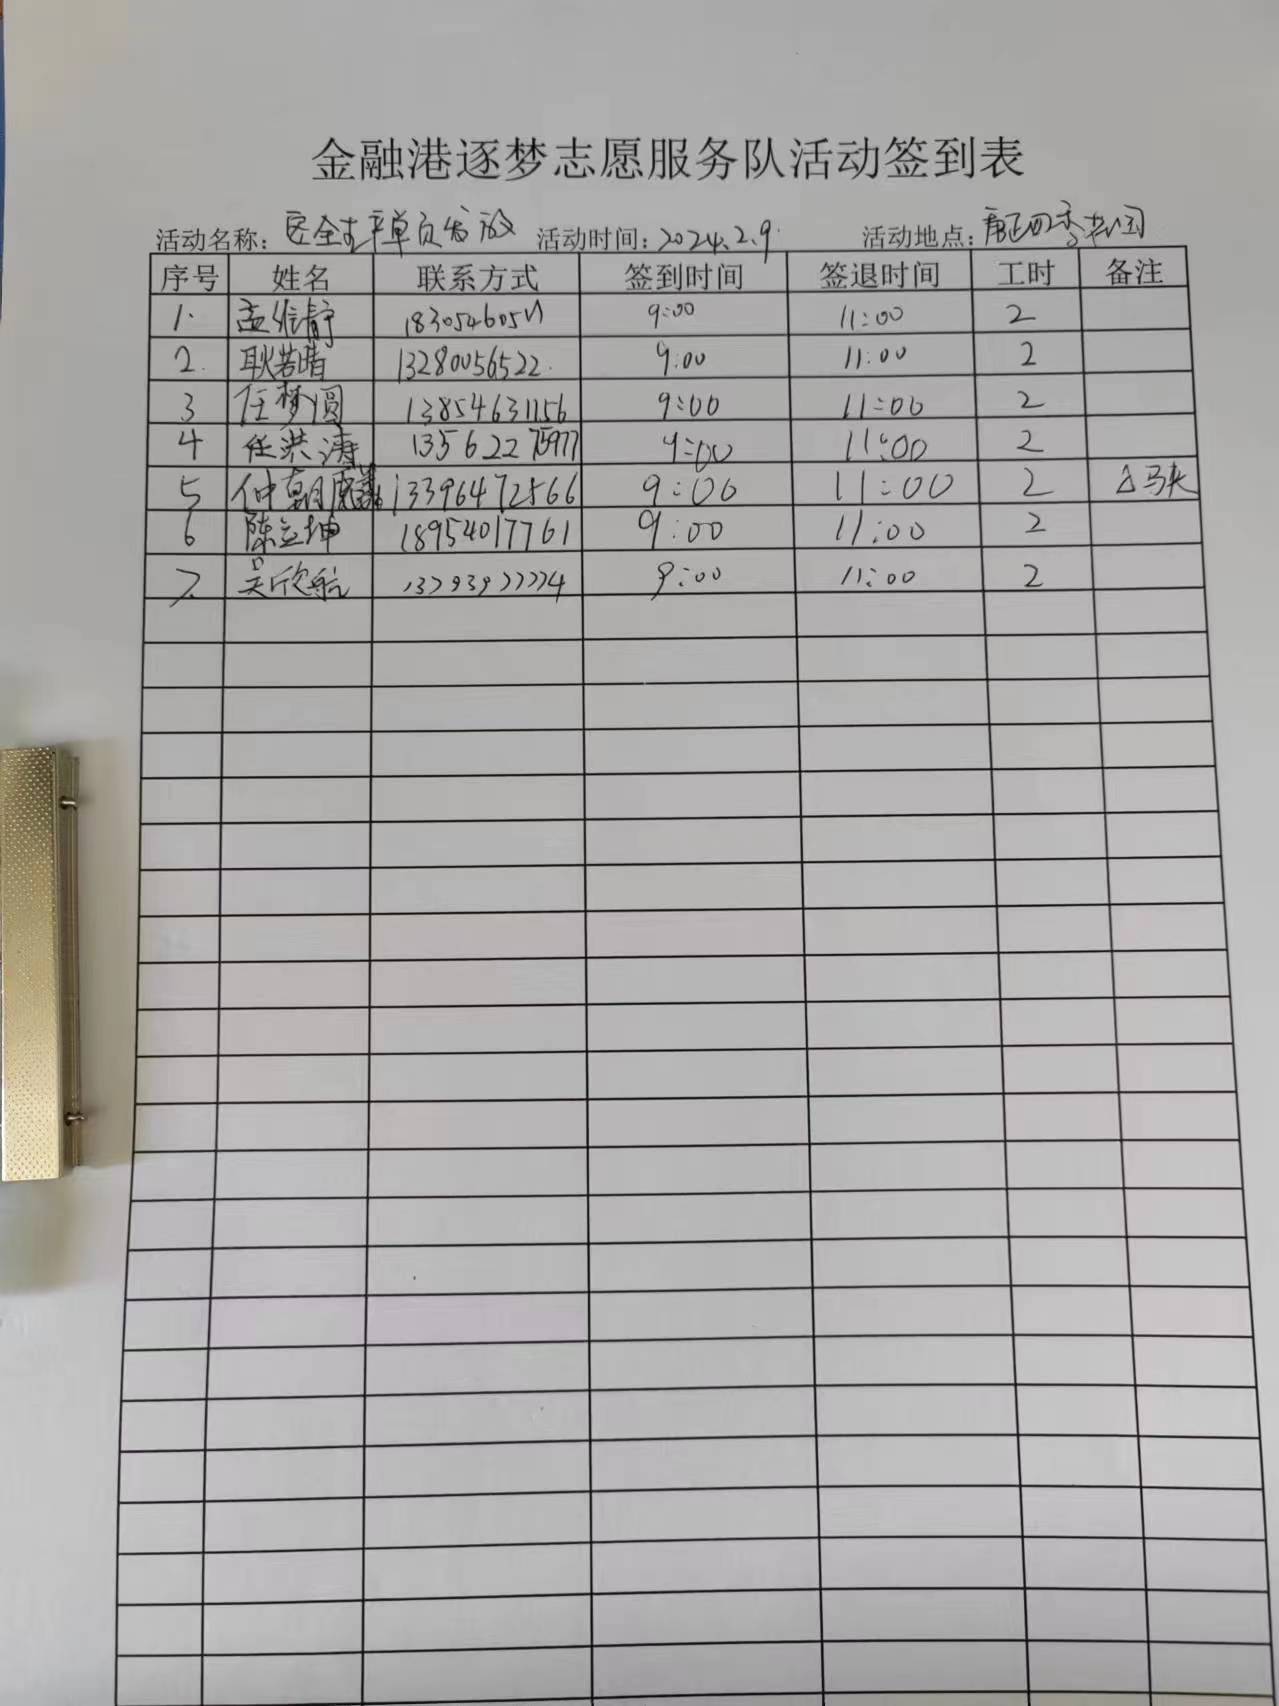 金融港逐梦志愿服务队活动签到表
活动名称：安全生产单页发放 活动时间：2024.2.9. 活动地点：
序号 姓名 联系方式 签到时间 签退时间 工时 备注
1. 孟 静 9:00 11:00 2
2. 耿若晴 13280056522. 9:00 11:00 2
3 任梦圆 13854631156 9:00 11:00 2
4 任洪涛 13562275977 9:00 11:00 2
5 13396472566 9:00 11:00 2 马夹
6 陈立坤 18954017761 9:00 11:00 2
7. 吴欣航 13793977774 9:00 11:00 2